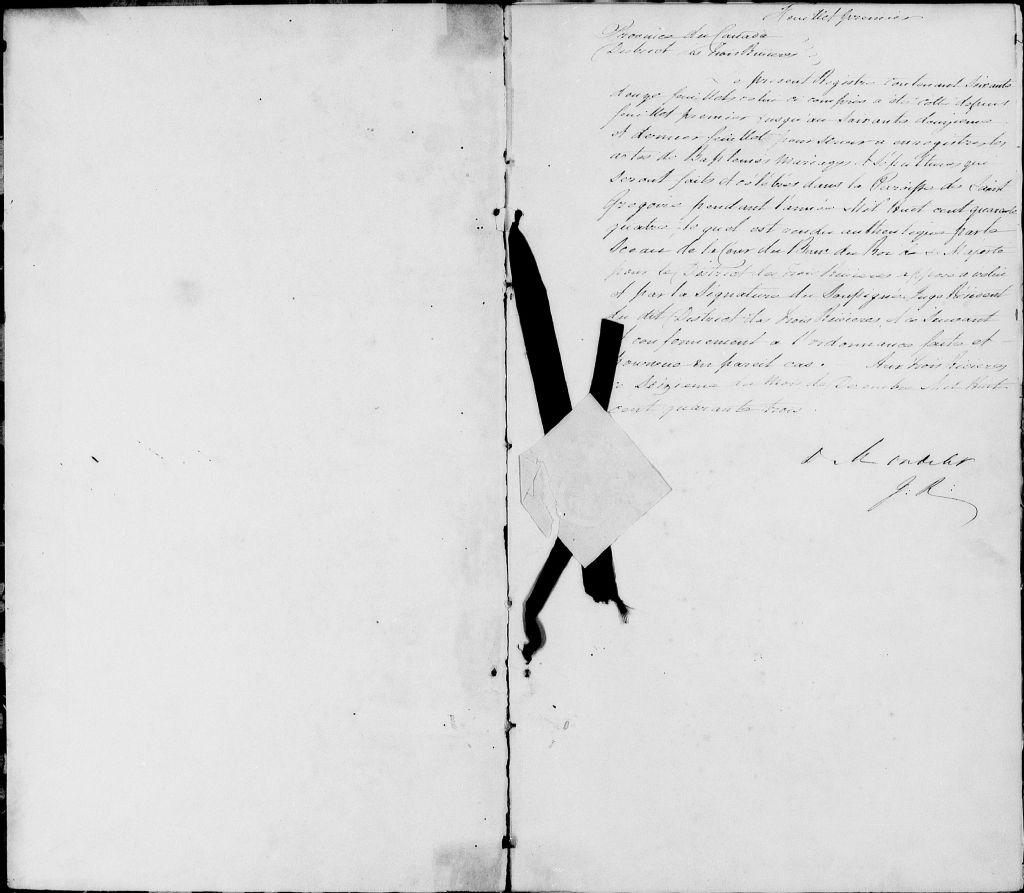 Feuillet premier
Province du Canada
District des Trois Rivieres
Le present Registre contenant Soixante
douze feuillets celui ci compris a été coté depuis
feuillet premier jusqu'au Soixante douzieme
et dernier feuillet pour servir a enregistrer les
actes de Baptemes Mariages et Sepultures qui
seront faits et célébrés dans la Paroisse de Saint
Gregoire pendant l'année Mil huit cent quarante
quatre, le quel est rendu authentique par le
Sceau de la Cour du Banc du Roi de sa Majesté
pour le District des Trois Rivieres apposé
et par la signature du Soussigné Juge Résident
du dit District des Trois Rivieres, et ce suivant
et conformement a l'ordonnance faite et
pourvue en pareil cas. Aux Trois Rivieres
le Seizieme du Mois de Decembre Mil huit
cent quarante trois.
D Mondelet
J: R: